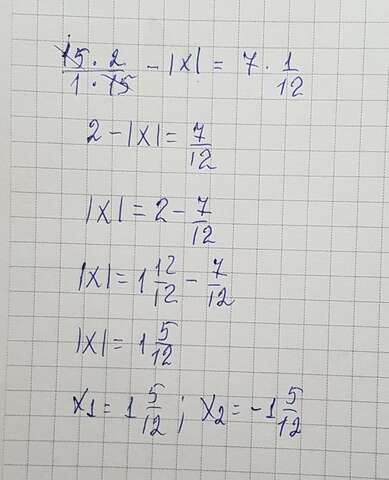 15 · 2 / 1 · 15 - |x| = 7 · 1/12
2 - |x| = 7/12
|x| = 2 - 7/12
|x| = 1 12/12 - 7/12
|x| = 1 5/12
x1 = 1 5/12 ; x2 = -1 5/12